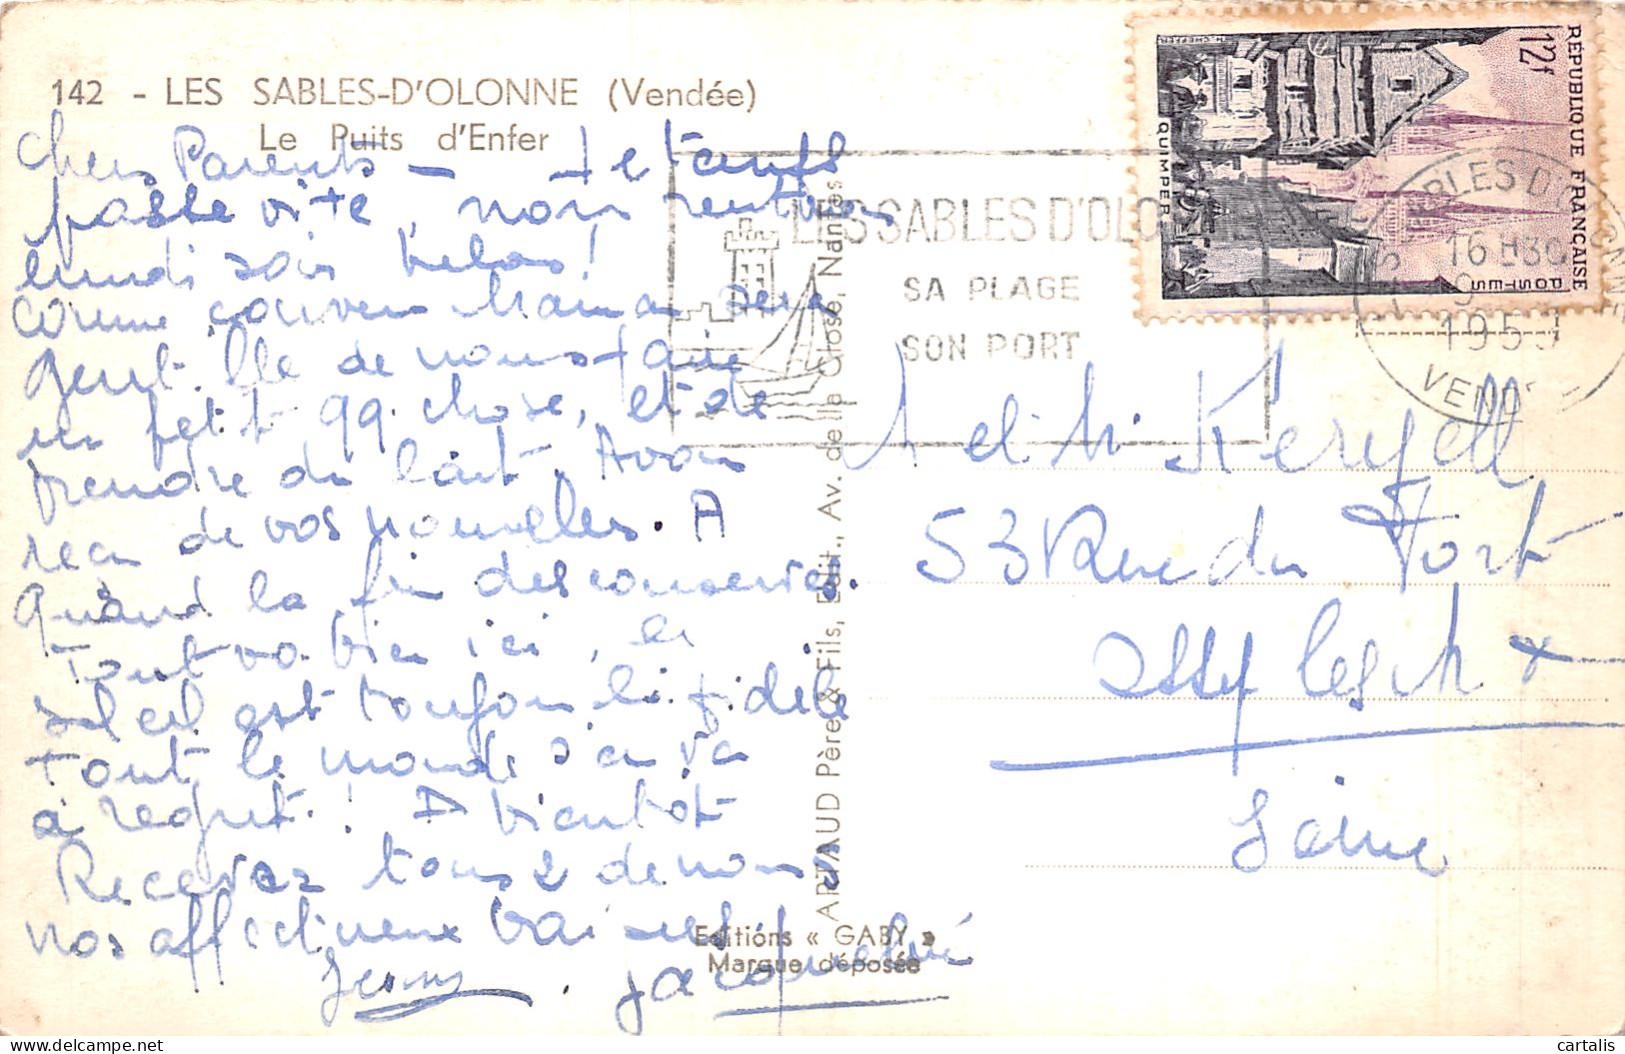 142 - LES SABLES-D'OLONNE (Vendée)
Le Puits d'Enfer
Chers Parents - le temps
passe vite, nous rentrons
lundi soir hélas!
comme convenu Maman sera
gentille de nous faire
un petit qq. chose, et de
prendre du lait. Avons
recu de vos nouvelles. A
Quand la fin des conserves.
Tout va bien ici, le
soleil est toujours fidèle
tout le monde s'en va
à regret! A bientôt
Recevez tous 2 de nous 2
nos affectueux baisers
Jacqueline
ARTAUD Père & Fils, Edit., Av. de la Close, Nantes
Editions « GABY »
Marque déposée
LES SABLES D'OLONNE
SA PLAGE
SON PORT
RÉPUBLIQUE FRANÇAISE
12f
POSTES
QUIMPER
H. CHEFFER
LES SABLES D'OLONNE
16 H30
9
195
VENDÉE
53 Rue du Fort
Issy les M x
Seine
cartalis
delcampe.net